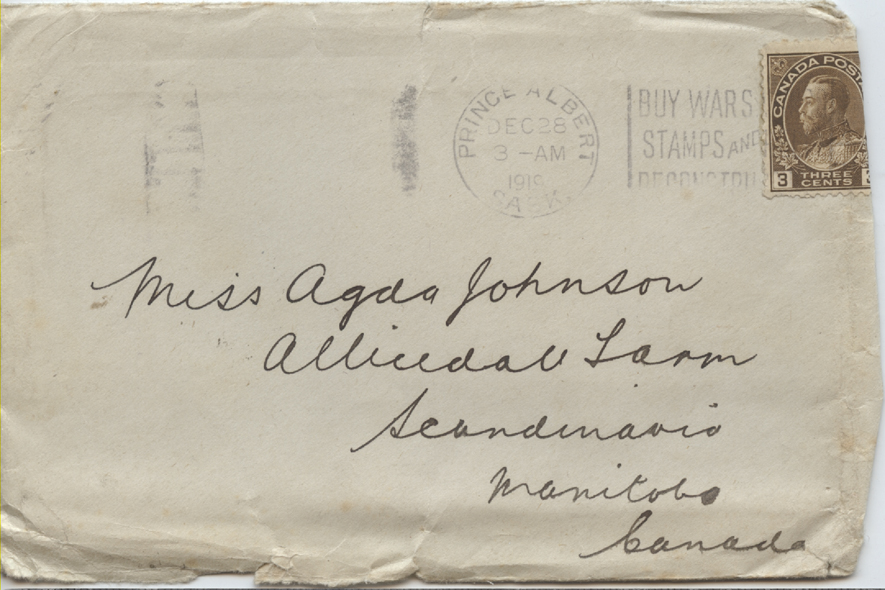 PRINCE ALBERT
DEC 28
3 -AM
SASK.
BUY WAR S
STAMPS AND
CANADA POST
3 THREE CENTS
Miss Agda Johnson
Farm
Scandinavia
Manitoba
Canada